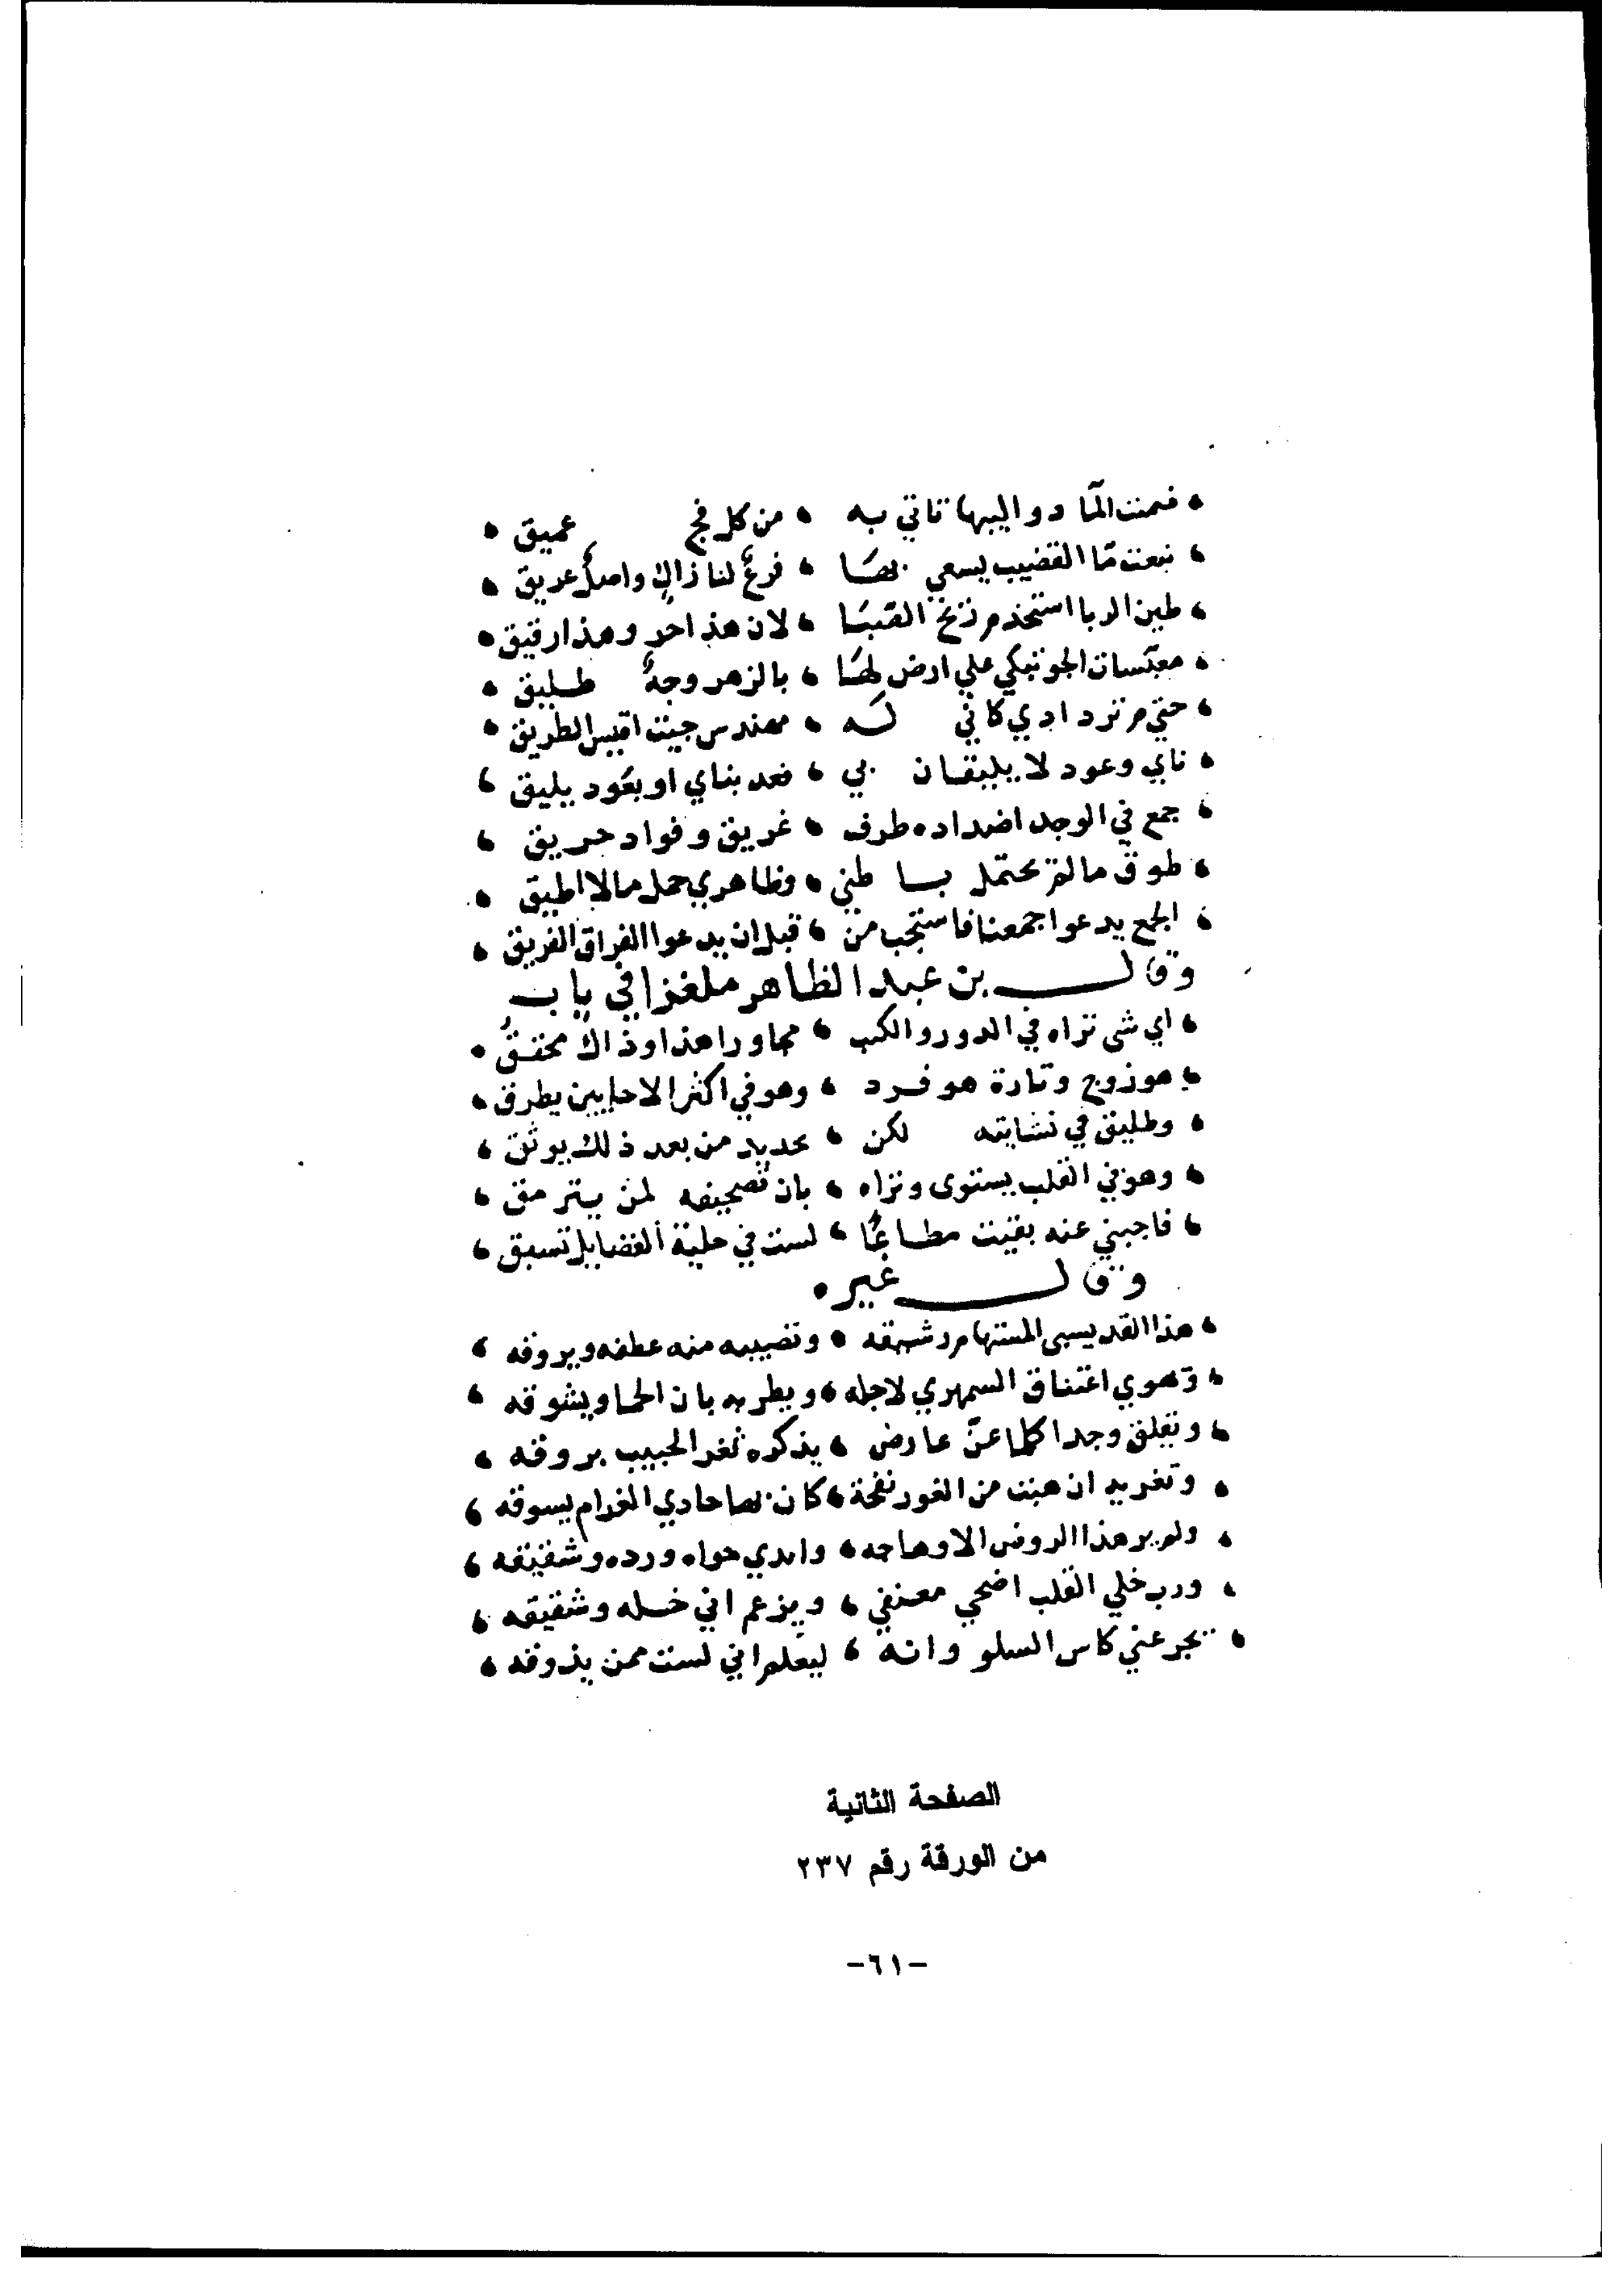 فمن الما دواليبها تاتي به ، من كل فج عميق ،
القضيب يسعي بها ، فرعٌ لنا زاكٍ واصلٌ عريق ،
طين الربا استخدم زنج القبا ، لان هذا حر وهذا رقيق ،
معبسات الجو تبكي علي ارض لها ، بالزهر وجهٌ طليق ،
حتي م تردادي كاني له ، مهندس جيت اقيس الطريق ،
ناي وعود لا يليقان بي ، فعد بناي او بعود يليق ،
جمع في الوجد اضداده طرف ، غريق وفواد حريق ،
طوق مالم يحتمل باطني ، وظاهري حمل مالا اطيق ،
الجمع يدعوا جمعنا فاستجب من ، قبل ان يدعوا الفراق الفريق ،
وقال بن عبد الظاهر ملغزا في باب
اي شي تراه في الدور والكتب ، مجاورا هذا وذاك محقق ،
هو زوج وتارة هو فرد ، وهو في اكثر الاحايين يطرق ،
وطليق في نشايته لكن ، بحديد من بعد ذلك يوثق ،
وهو في القلب يستوى وتراه ، بان تصحيفه لمن يترمق ،
فاجبني عنه بقيت مطاعًا ، لست في حلية الفضايل تسبق ،
وقال غيره
هذا القد يسبى المستهام رشيقه ، وتصيبه منه عطفه ويروقه ،
وتهوي اعتناق السمهري لاجله ، ويطربه بان الحما ويشوقه ،
ويقلق وجدا كلما عنّ عارض ، يذكره ثغر الحبيب بروقه ،
وتغريه ان هبت من الغور نفحة ، كان بها حادي الغرام يسوقه ،
ولم ير هذا الروض الا وهاجه ، وابدي جواه ورده وشقيقه ،
ورب خلي القلب اضحي معنفي ، ويزعم اني خله وشقيقه ،
يجرعني كاس السلو وانه ، ليعلم اني لست ممن يذوقه ،
الصفحة الثانية
من الورقة رقم ٢٣٧
-٦١-